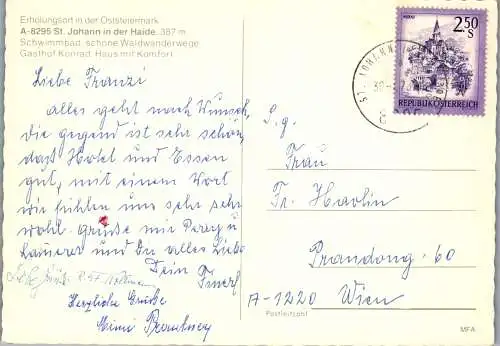 Erholungsort in der Oststeiermark
A-8295 St. Johann in der Haide, 387 m
Schwimmbad, schöne Waldwanderwege
Gasthof Konrad, Haus mit Komfort
Liebe Franzi
alles geht nach Wunsch,
die gegend ist sehr schön,
das Hotel und Essen
gut, mit einem Wort
wir fühlen uns sehr sehr
wohl. Grüße mir Perry u
und Du alles Liebe
Dein
Herzliche Grüße
Mimi
MURAU
2.50
S
REPUBLIK ÖSTERREICH
ST. JOHANN
S. g.
Frau
Fr. Havlin
Prandaug. 60
A-1220 Wien
Postleitzahl
MFA